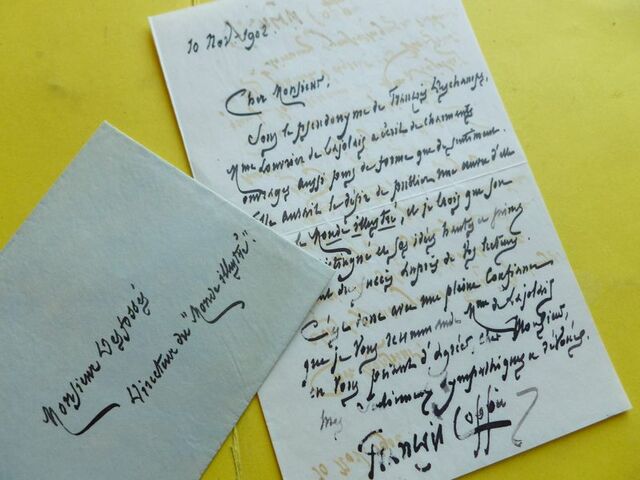 10 Nov. 1902.
Cher Monsieur,
Sous le pseudonyme de François Deschamps,
Mme Louvrier de Lajolais a écrit de charmants
ouvrages aussi purs de forme que de sentiment.
Elle aurait le désir de publier une œuvre d'elle
le Monde illustré, et je crois que son
et ses idées hautes et
succès auprès de vos lecteurs
C'est donc avec une pleine confiance
que je vous recommande Mme de Lajolais
en vous priant d'agréer, cher Monsieur,
mes sentiments sympathiques et dévoués.
François Coppée
Monsieur Desfossés
Directeur du "Monde illustré".